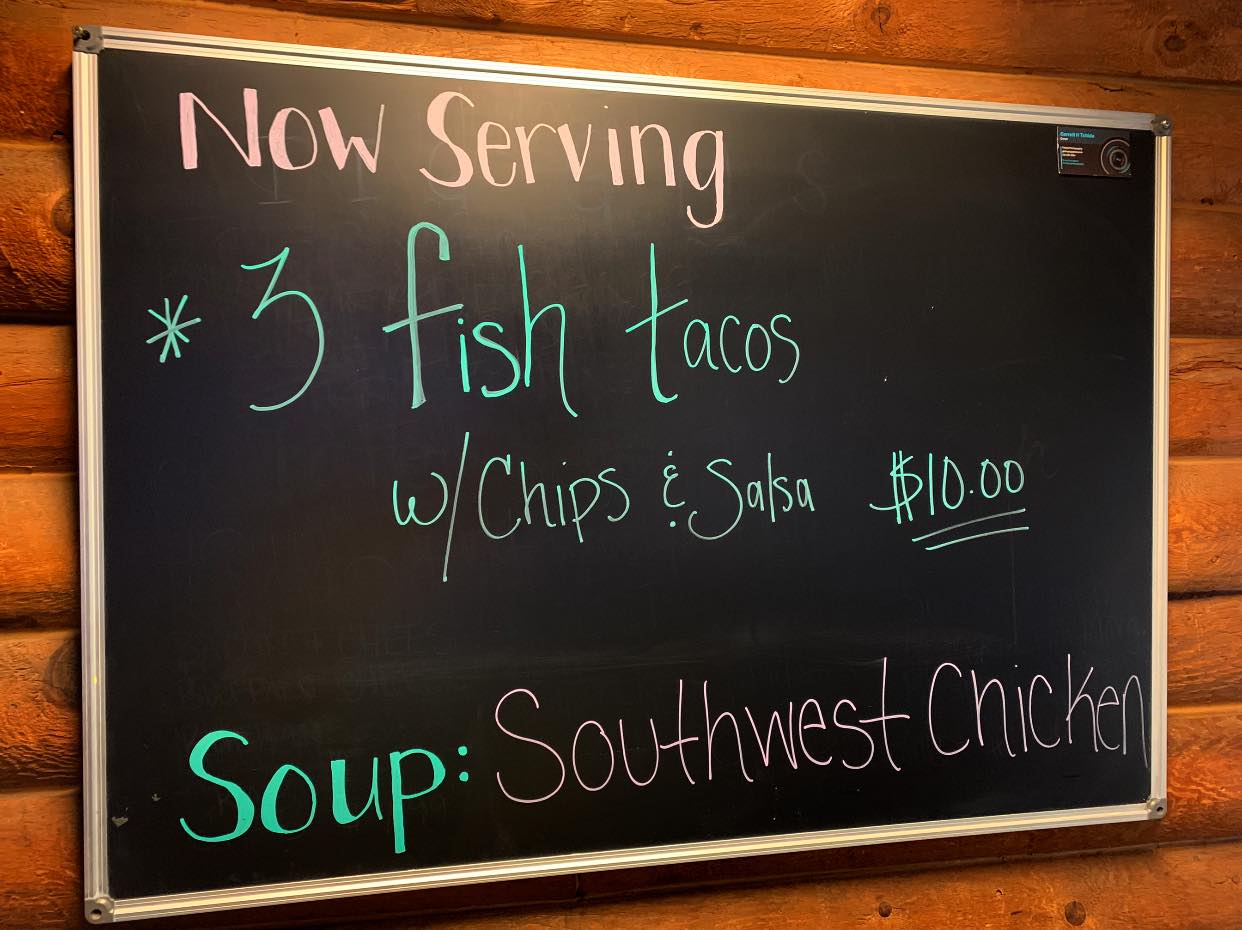 Now Serving
* 3 fish tacos
w/ Chips & Salsa $10.00
Soup: Southwest Chicken